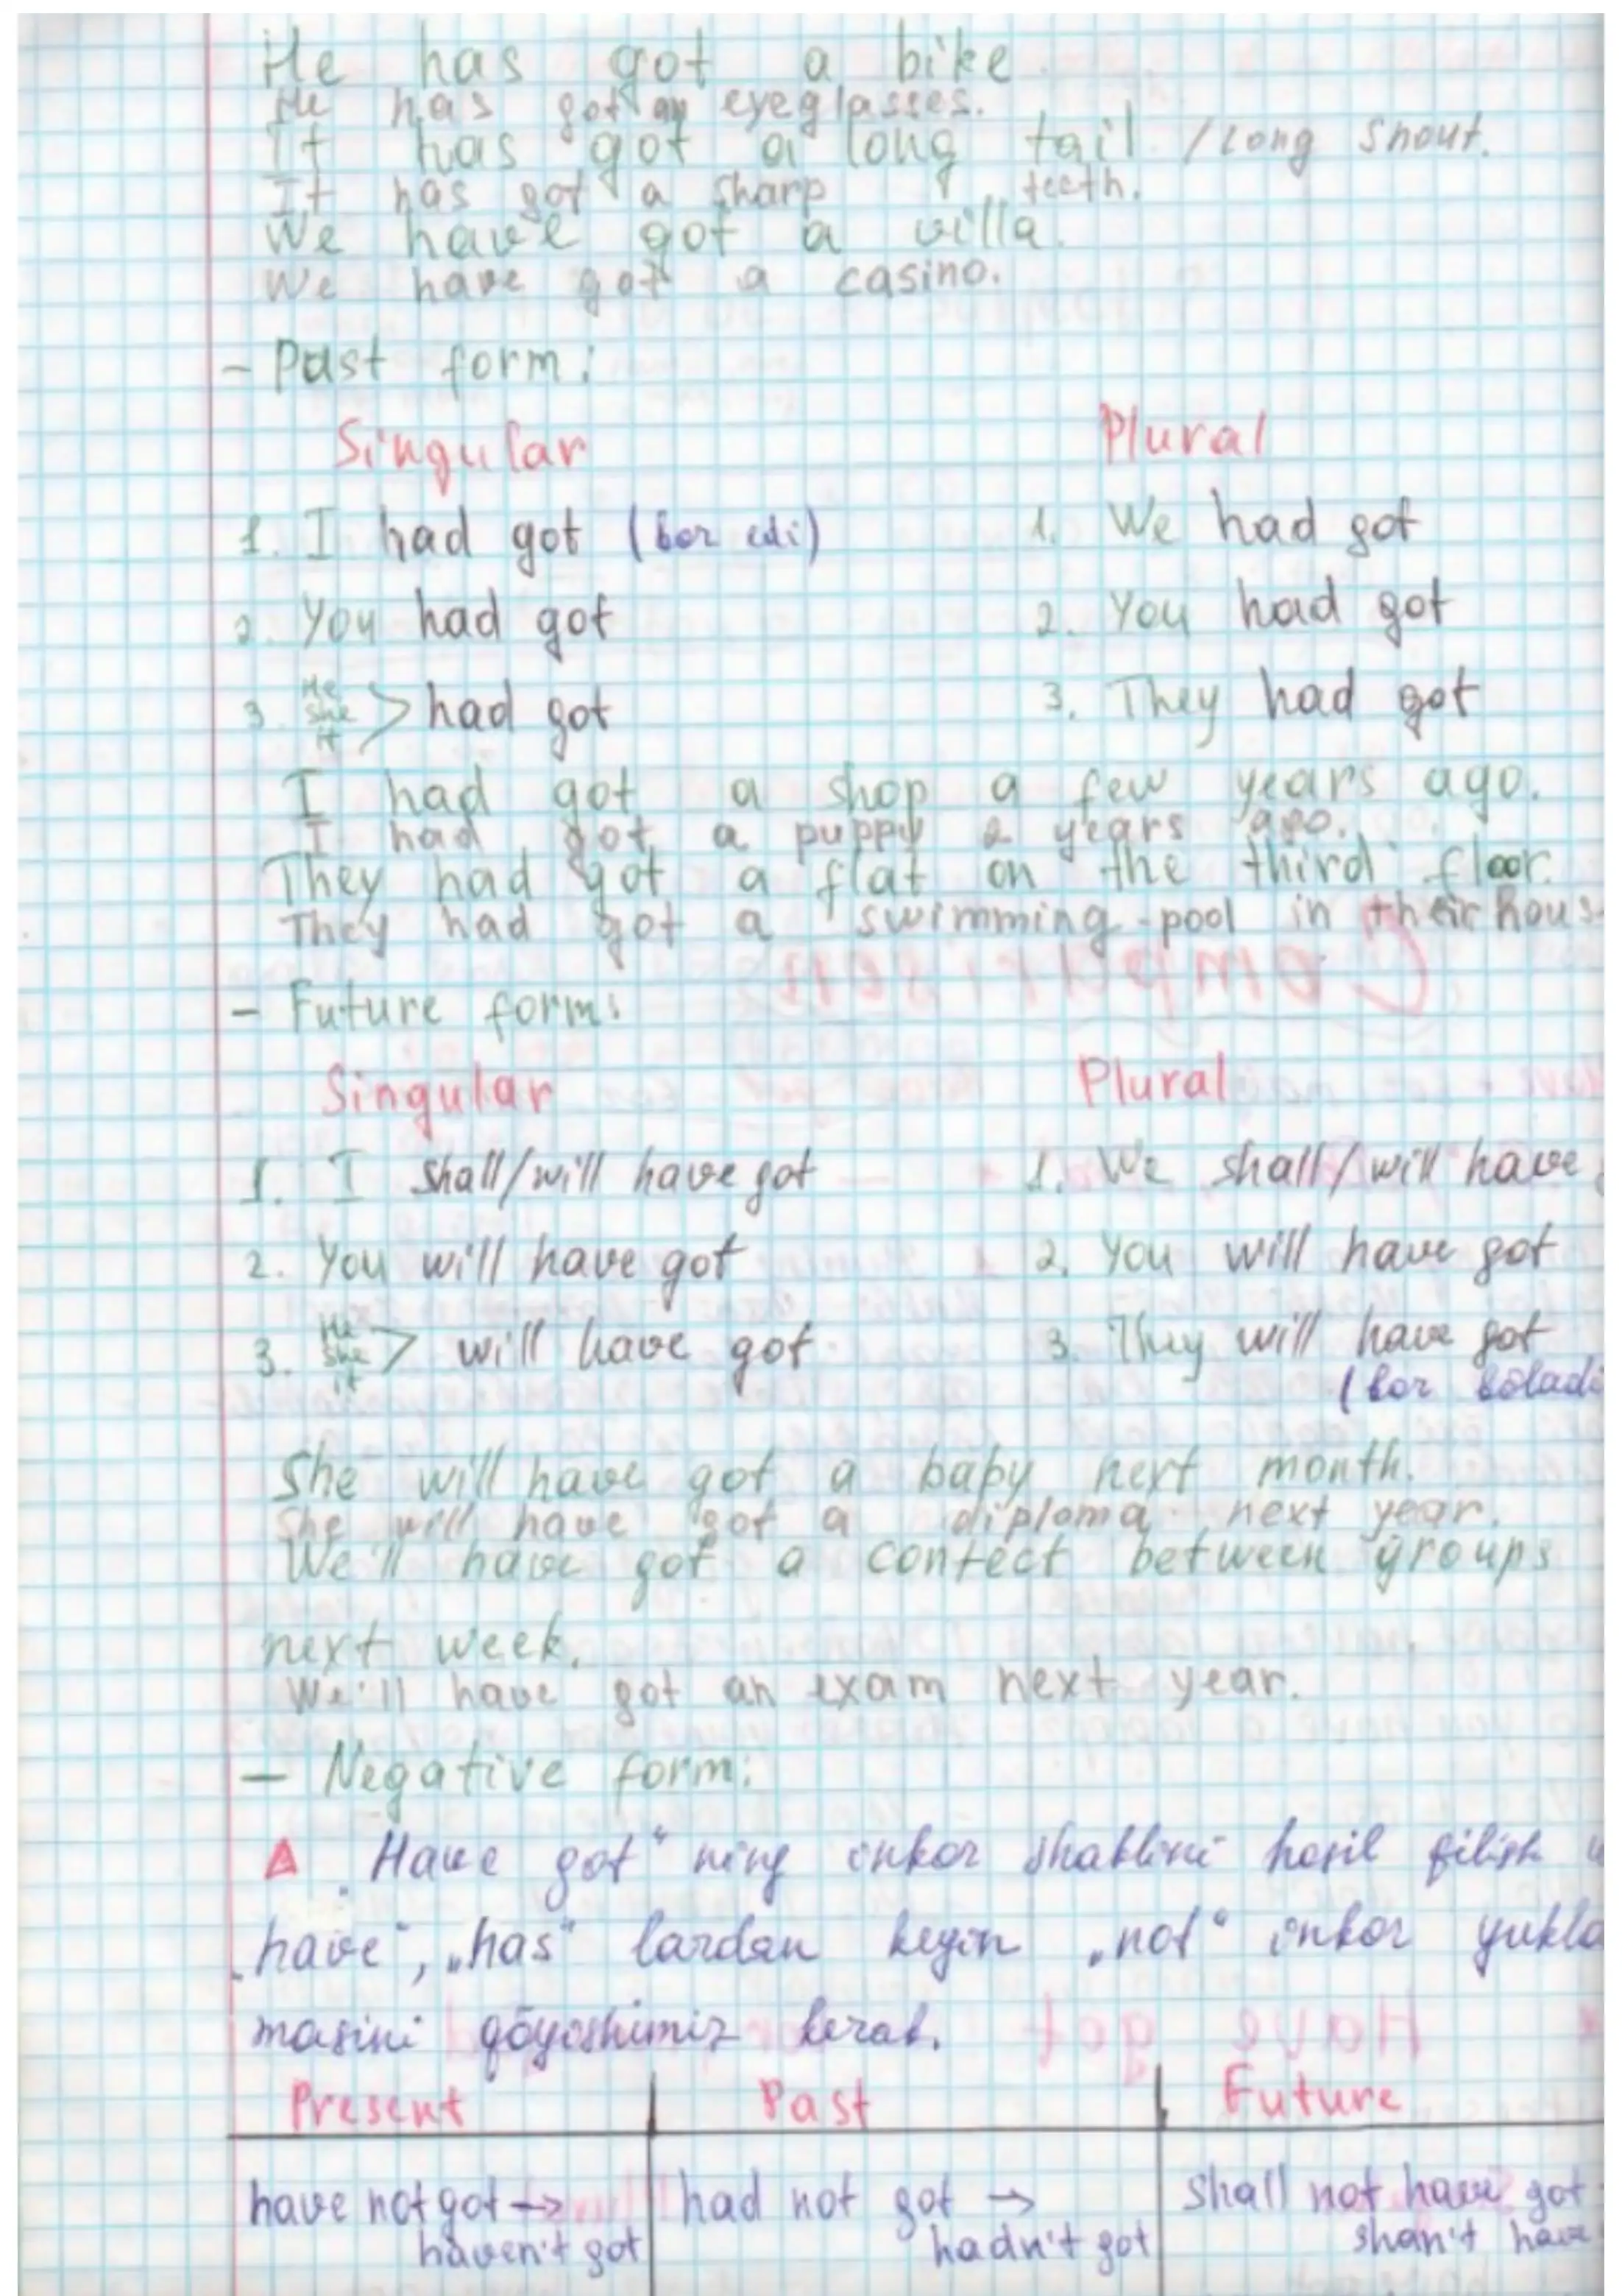 He has got a bike.
He has got an eyeglasses.
It has got a long tail / Long snout.
It has got a sharp teeth.
We have got a villa.
We have got a casino.
- Past form:
Singular Plural
1. I had got (bor edi) 1. We had got
2. You had got 2. You had got
3. He She it > had got 3. They had got
I had got a shop a few years ago.
I had got a puppy 2 years ago.
They had got a flat on the third floor.
They had got a swimming-pool in their hous
- Future form:
Singular Plural
1. I shall/will have got 1. We shall/will have
2. You will have got 2. You will have got
3. He She it > will have got 3. They will have got
(bor bōladi
She will have got a baby next month.
She will have got a diploma next year.
We'll have got a contect between groups
next week.
We'll have got an exam next year.
- Negative form:
„Have got“ ning inkor shaklini hosil qilish
„have“, „has“ lardan keyin „not“ inkor yukla
masini qōyishimiz kerak.
Present Past Future
have not got → had not got → shall not have got
haven't got hadn't got shan't have